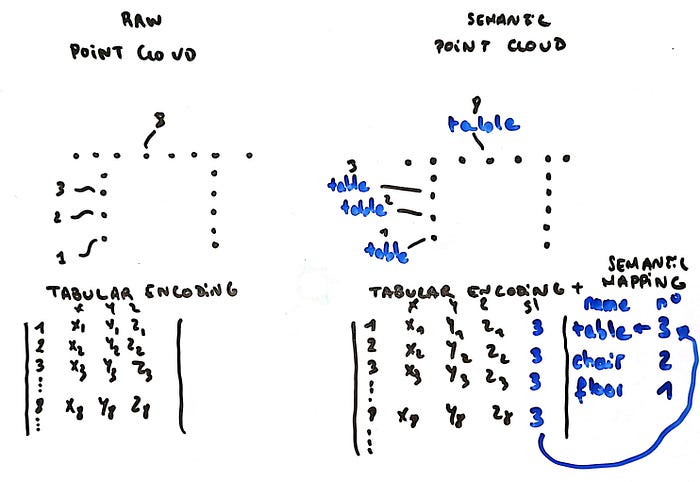 RAW
POINT CLOUD
8
3
2
1
TABULAR ENCODING
x y z
1 x₁ y₁ z₁
2 x₂ y₂ z₂
3 x₃ y₃ z₃
⋮
8 x₈ y₈ z₈
⋮
SEMANTIC
POINT CLOUD
8
table
3
table
2
table
1
table
TABULAR ENCODING +
x y z sl
1 x₁ y₁ z₁ 3
2 x₂ y₂ z₂ 3
3 x₃ y₃ z₃ 3
⋮
8 x₈ y₈ z₈ 3
⋮
SEMANTIC
MAPPING
name n°
table ← 3
chair 2
floor 1